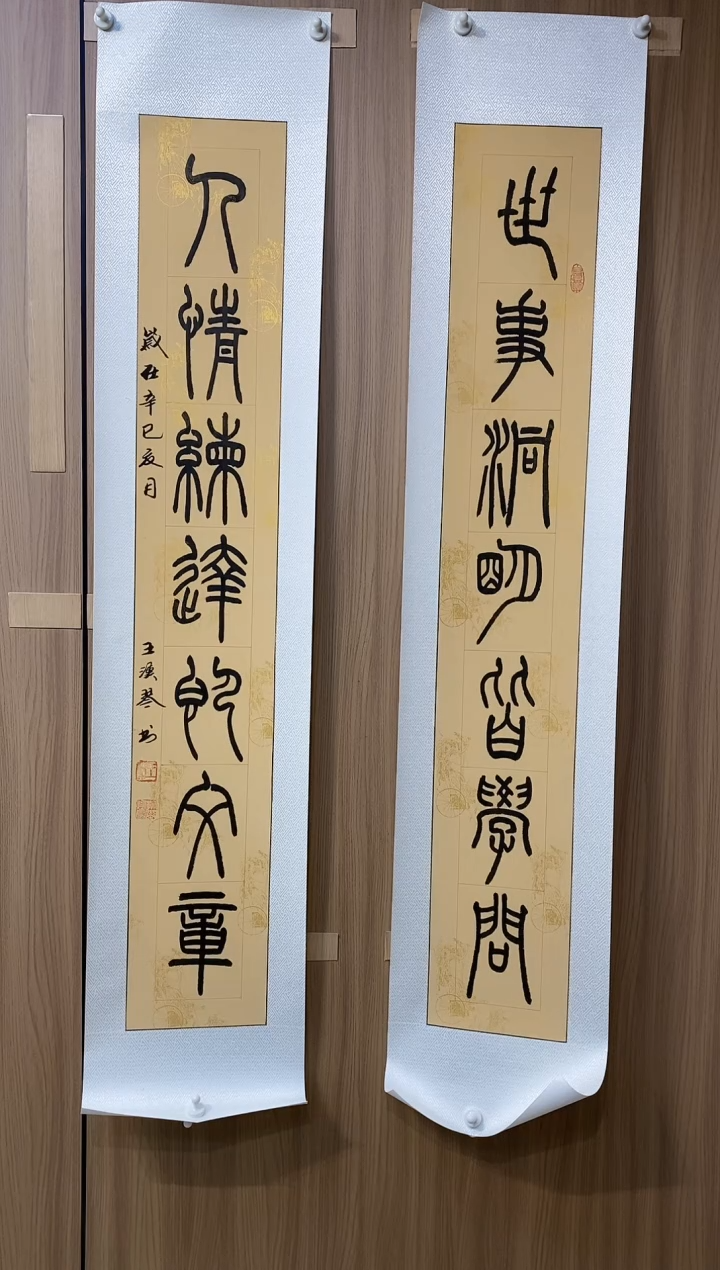 世事洞明皆學問
人情練達即文章
歲在辛巳夏月
王漢琴书